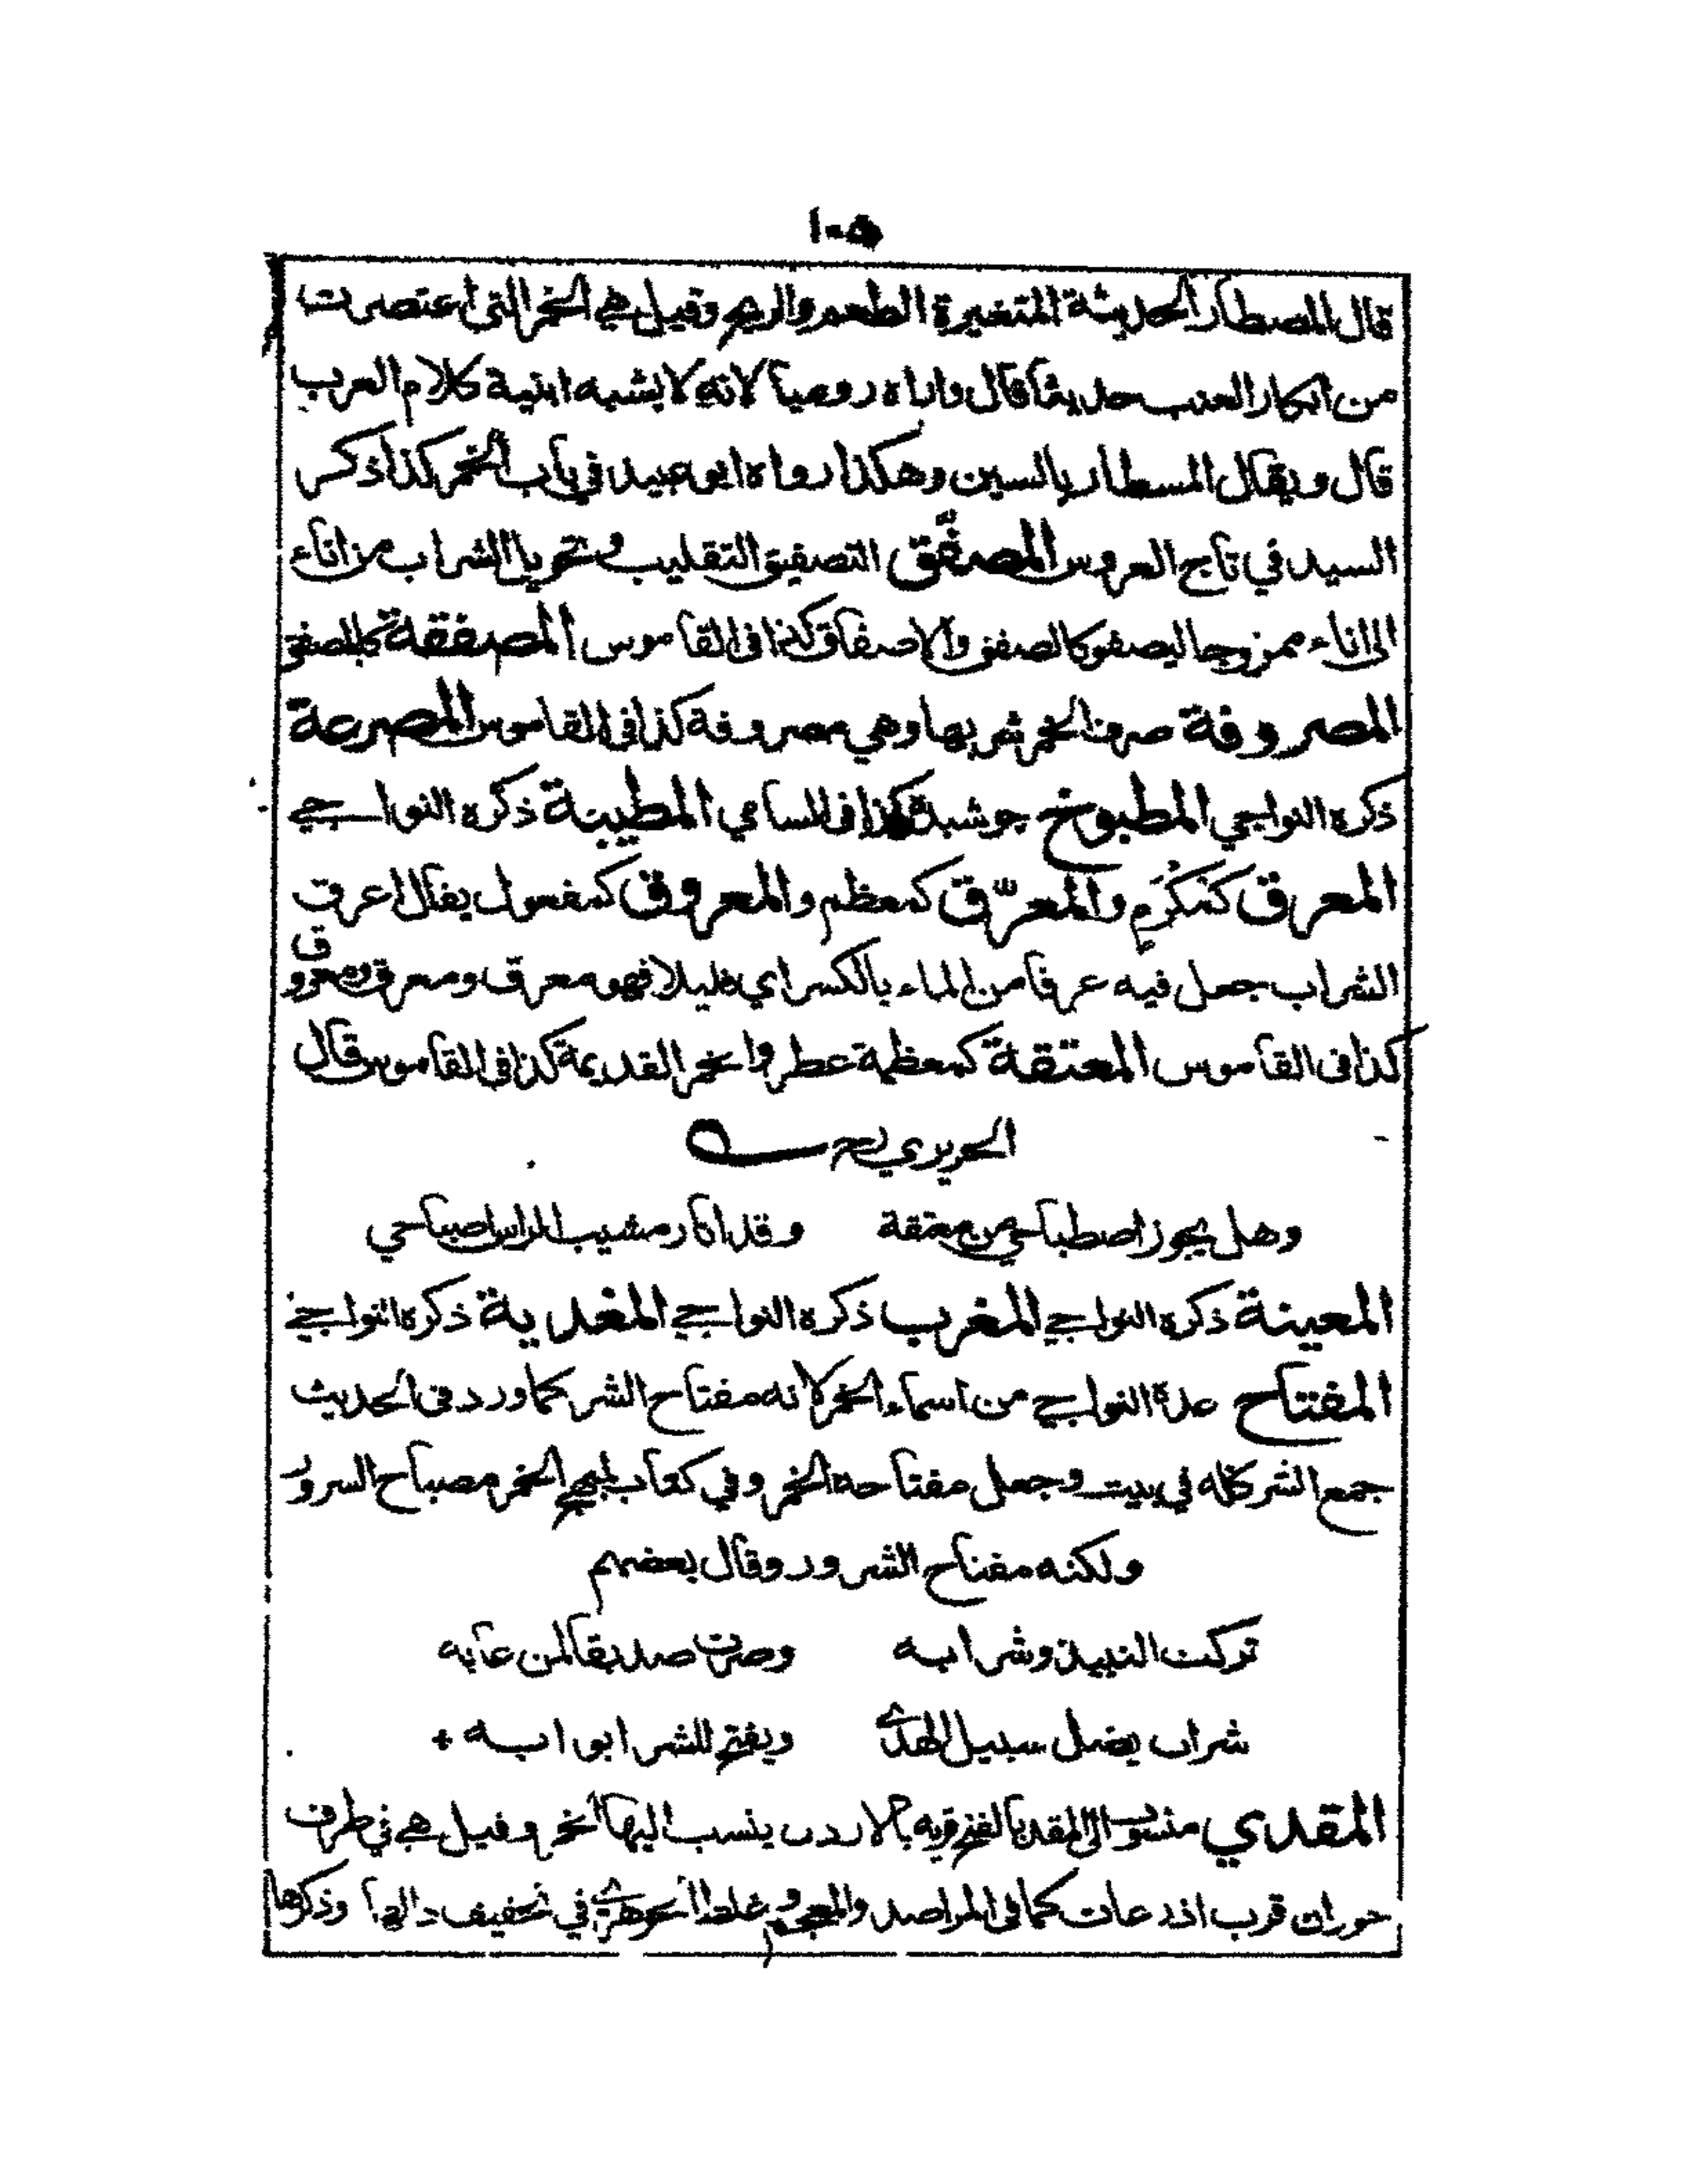 ١٠٥
قال المصطار الحديثة المتغيرة الطعم والريح وقيل هي الخمر التي اعتصرت
من ابكار العنب حديثا قال واراه روميا لانه لا يشبه ابنية كلام العرب
قال ويقال المسطار بالسين وهكذا رواه ابو عبيد في باب الخمر كذا ذكر
السيد في تاج العروس المصفّق التصفيق التقليب وتحويل الشراب من اناء
الى اناء ممزوجا ليصفو كالصفق والاصفاق كذا في القاموس المصفقة كالمصفق
المصروفة صرف الخمر شربها وهي مصروفة كذا في القاموس المصرعة
ذكره النواجي المطبوخ جوشيده كذا في السامي المطيبة ذكره النواجي
المعرق كمُكْرَمٍ والمعرّق كمعظم والمعروق كمفعول يقال اعرق
الشراب جعل فيه عرقا من الماء بالكسر اي قليلا فهو معرق ومعرق ومعروق
كذا في القاموس المعتقة كمعظمة عطر والخمر القديمة كذا في القاموس قال
الحريري رح
وهل يجوز اصطباحي من معتقة وقد انار مشيب الراس اصباحي
المعينة ذكره النواجي المغرب ذكره النواجي المغدية ذكره النواجي
المفتاح عده النواجي من اسماء الخمر لانه مفتاح الشر كما ورد في الحديث
جمع الشر كله في بيت وجعل مفتاحه الخمر وفي كتاب المبهج الخمر مصباح السرور
ولكنه مفتاح الشرور وقال بعضهم
تركت النبيذ وشرابه وصرت صديقا لمن عابه
شراب يضل سبيل الهدى ويفتح للشر ابوابه
المقدي منسوب الى المقد بالفتح قرية بالاردن ينسب اليها الخمر وقيل هي في طرف
حوران قرب اذرعات كما في المراصد والمعجم وغلط الجوهري في تخفيف دالها وذكرها